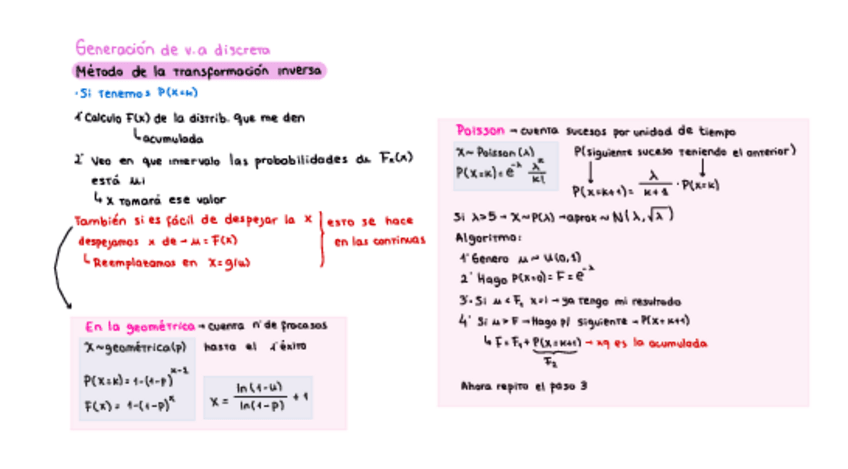 Generación de v.a discreta
Método de la transformación inversa
·Si tenemos P(x=k)
1º Calculo F(x) de la distrib. que me den
↳ acumulada
2º Veo en que intervalo las probabilidades de Fₓ(x)
está μi
↳ x tomará ese valor
También si es fácil de despejar la x
despejamos x de → μ = F(x)
↳ Reemplazamos en x=g(u)
esto se hace
en las continuas
En la geométrica → cuenta nº de fracasos
hasta el 1º éxito
X~geométrica(p)
P(x=k) = 1-(1-p)^(k-1)
F(x) = 1-(1-p)^x
x = ln(1-u) / ln(1-p) + 1
Poisson → cuenta sucesos por unidad de tiempo
X~ Poisson(λ)
P(x=k) = e^(-λ) λ^k / k!
P(siguiente suceso teniendo el anterior)
P(x=k+1) = λ / k+1 · P(x=k)
Si λ>5 → X~P(λ) → aprox ~ N(λ,√λ)
Algoritmo:
1º Genero μ ~ U(0,1)
2º Hago P(x=0) = F = e^(-λ)
3º· Si μ < F, x=i → ya tengo mi resultado
4º Si μ > F → Hago pi siguiente → P(x=k+1)
↳ F = F₁ + P(x=k+1) → xq es la acumulada
F₂
Ahora repito el paso 3